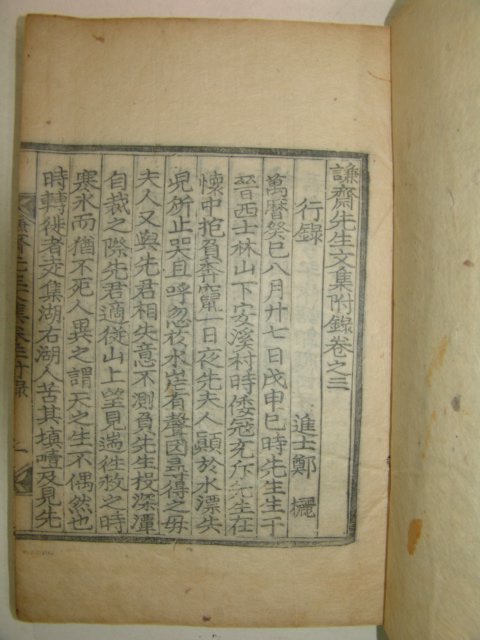 謙齋先生文集附錄卷之三
行錄
進士鄭欐
萬曆癸巳八月廿七日戊申巳時先生生于
晉西士林山下安溪村時倭冦充斥先生在
懷中抱負奔竄一日夜先夫人顚於水漂失
兒所止哭且呼忽於水崖有聲因尋得之毋
夫人又與先君相失意不測負先生投深潭
自裁之際先君適從山上望見遄徃救之時
寒氷而猶不死人異之謂天之生不偶然也
時轉徙者走集湖右湖人苦其填噎及見先
謙齋先生文集卷三附錄
一